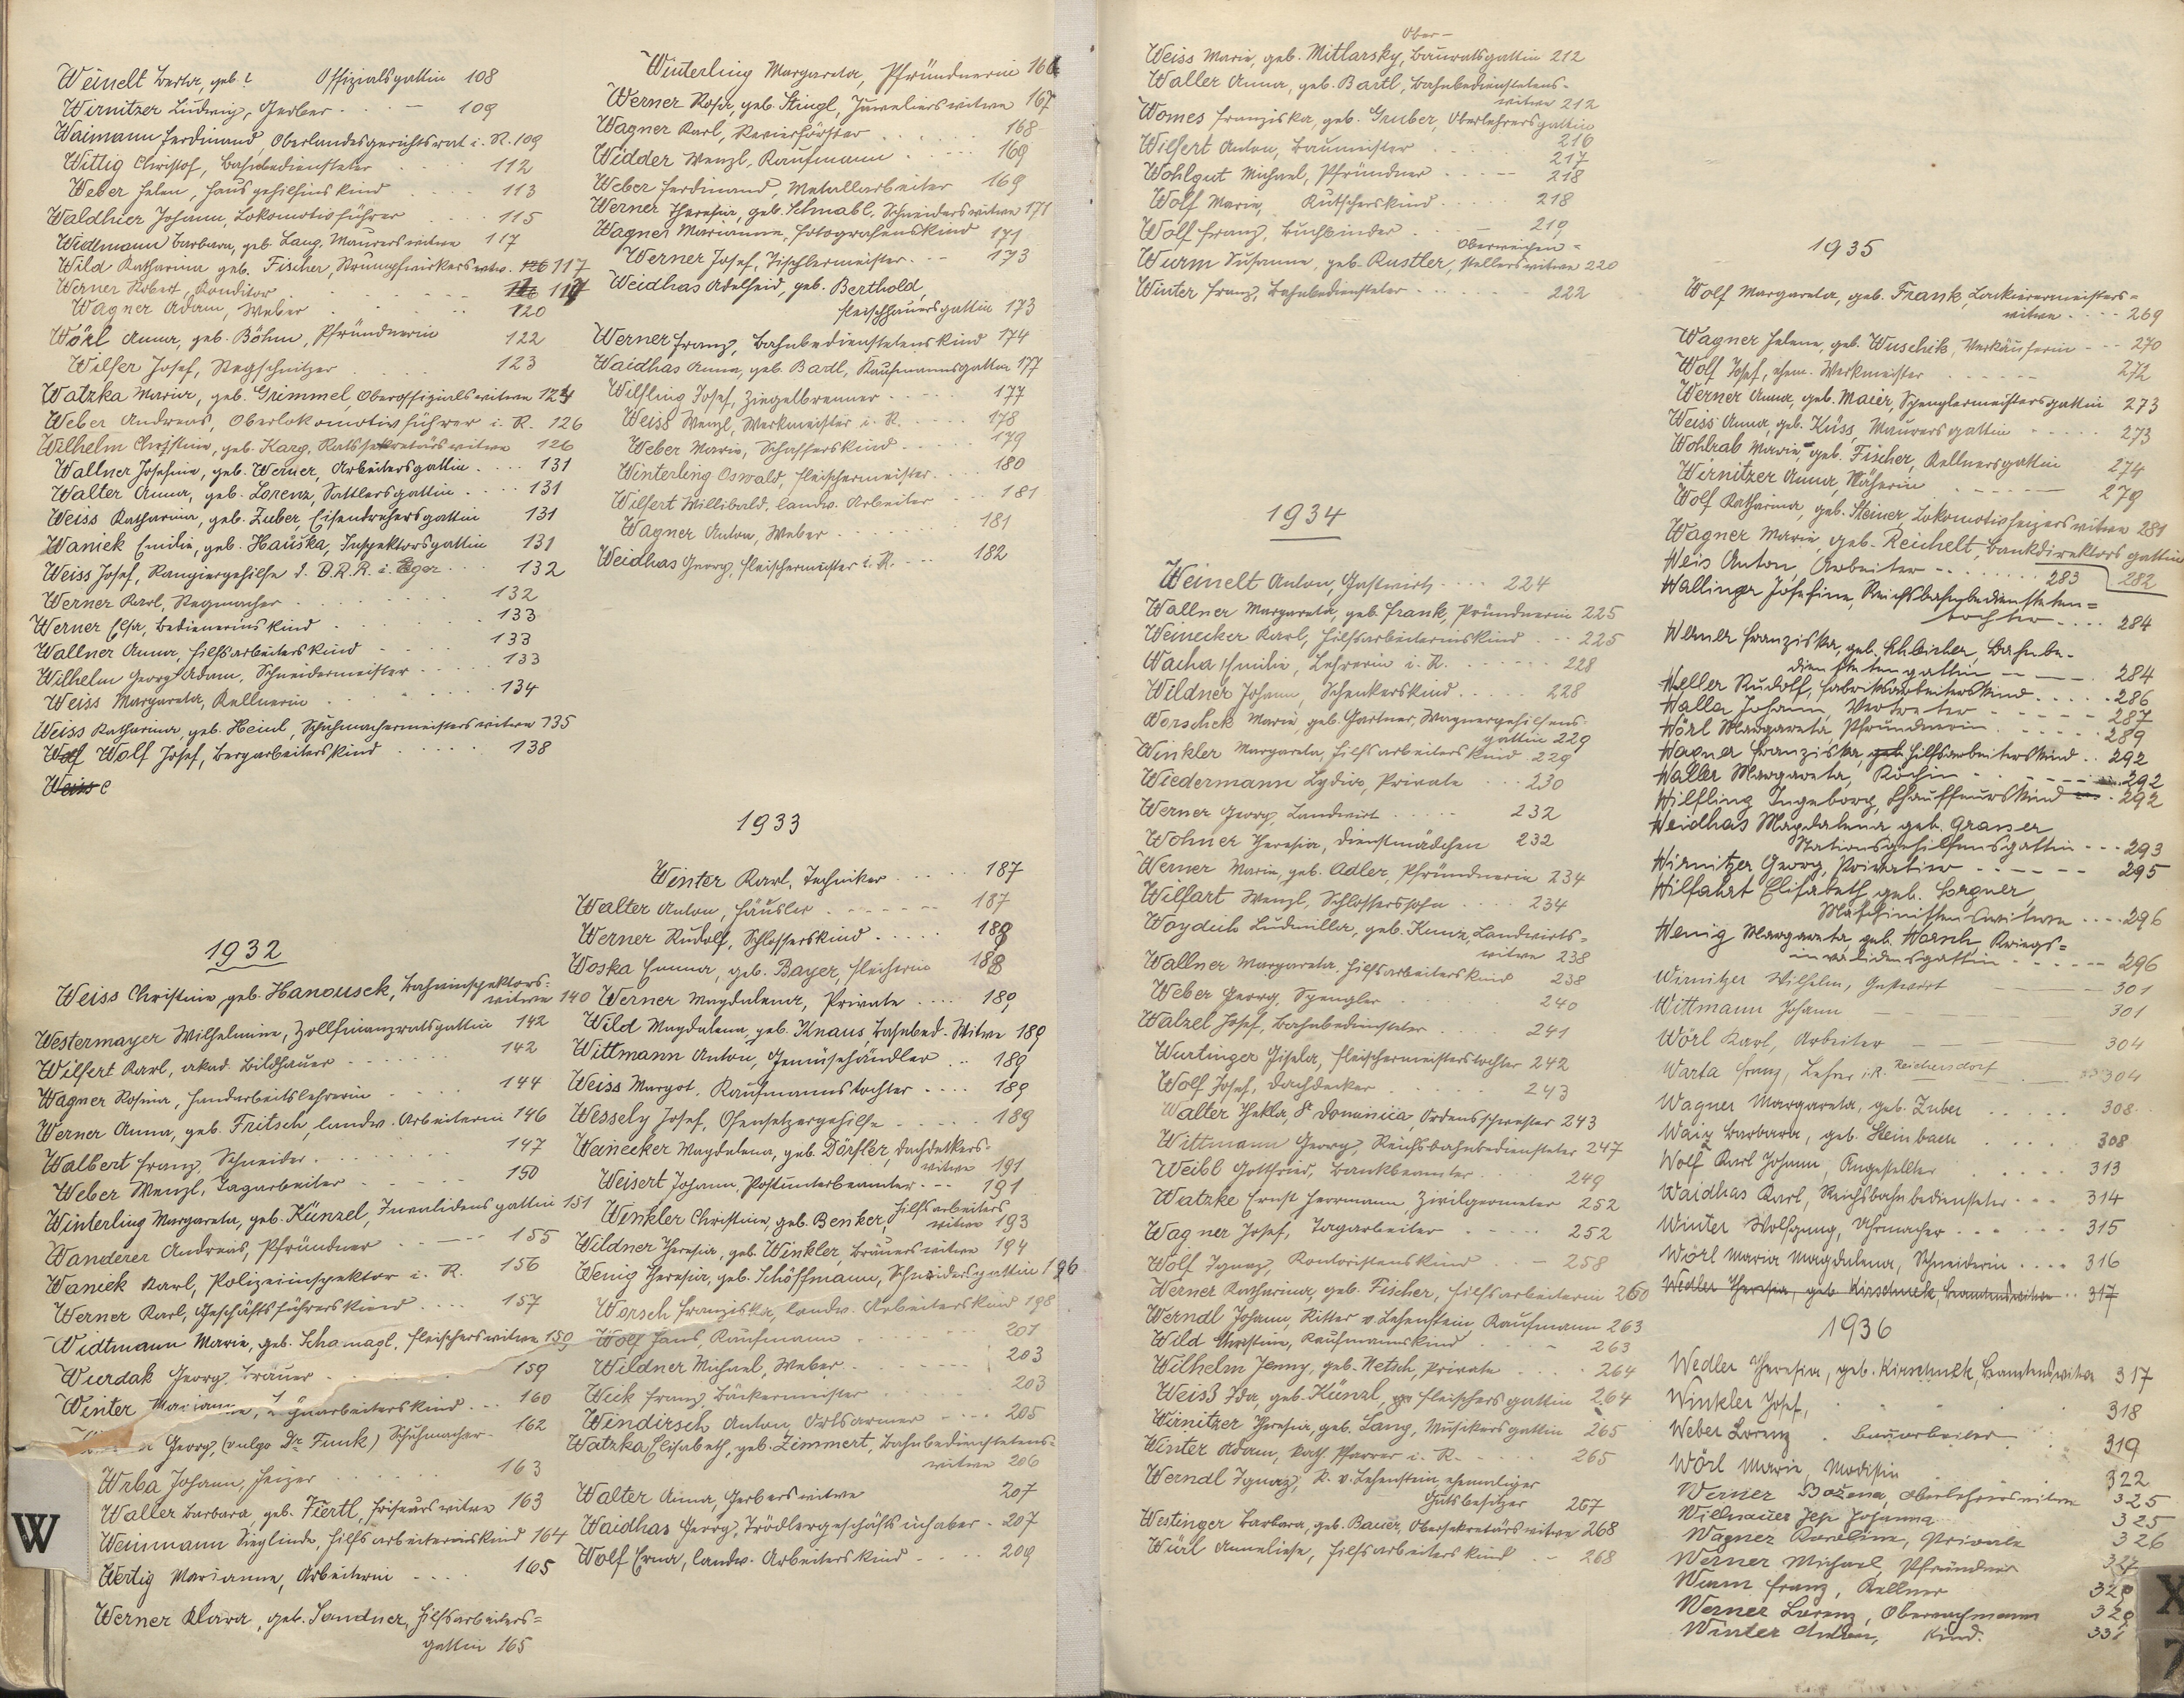 Weinelt Berta, geb? Offizialsgattin 108
Wirnitzer Ludwig, Gerber 109
Waimann Ferdinand, Oberlandesgerichtsrat i. R. 109
Wittig Christof, Bahnbediensteter 112
Weber Helen, Hausgehilfinskind 113
Waldhier Johann, Lokomotivführer 115
Widlmann Barbara, geb. Lang, Maurerswitwe 117
Wild Katharina geb. Fischer, Strumpfwirkerswtw. 117
Werner Robert, Konditor 117
Wagner Adam, Weber 120
Wörl Anna, geb. Böhm, Pfründnerin 122
Wilfer Josef, Stegschnitzer 123
Watzka Maria, geb. Grimmel, Oberoffizialswitwe 124
Weber Andreas, Oberlokomotivführer i. R. 126
Wilhelm Christine, geb. Karg, Ratssekretärswitwe 126
Wallner Josefine, geb. Werner, Arbeitersgattin 131
Walter Anna, geb. Lorenz, Sattlersgattin 131
Weiss Katharina, geb. Zuber, Eisendrehersgattin 131
Waniek Emilie, geb. Hauska, Inspektorsgattin 131
Weiss Josef, Rangiergehilfe d. B.R.R. i. Eger 132
Werner Karl, Stegmacher 132
Werner Elsa, Bedienerinskind 133
Wallner Anna, Hilfsarbeiterskind 133
Wilhelm Georg Adam, Schneidermeister 133
Weiss Margareta, Kellnerin 134
Weiss Katharina, geb. Heinl, Schuhmachermeisterswitwe 135
Wolf Josef, Bergarbeiterskind 138
1932
Weiss Christine, geb. Hanousek, Bahninspektors-
witwe 140
Westermayer Wilhelmine, Zollfinanzratsgattin 142
Wilfert Karl, akad. Bildhauer 142
Wagner Rosina, Handarbeitslehrerin 144
Werner Anna, geb. Fritsch, landw. Arbeiterin 146
Walbert Franz, Schneider 147
Weber Wenzl, Tagarbeiter 150
Winterling Margareta, geb. Künzel, Invalidensgattin 151
Wanderer Andreas, Pfründner 155
Waniek Karl, Polizeiinspektor i. R. 156
Werner Karl, Geschäftsführerskind 157
Widtmann Marie, geb. Schamagl, Fleischerswitwe 159
Wurdak Georg, Bräuer 159
Winter Marianne, 160
Georg, (vulgo Dr. Funk) Schuhmacher 162
Wrba Johann, Heizer 163
Waller Barbara, geb. Fiertl, Friseurswitwe 163
Weinmann Sieglinde, Hilfsarbeiterinskind 164
Wertig Marianne, Arbeiterin 165
Werner Klara, geb. Sandner, Hilfsarbeiters=
gattin 165
W
Winterling Margareta, Pfründnerin 166
Werner Rosa, geb. Stingl, Juwelierswitwe 167
Wagner Karl, Revierförster 168
Widder Wenzl, Kaufmann 169
Weber Ferdinand, Metallarbeiter 169
Werner Theresia, geb. Schnabl, Schneiderswitwe 171
Wagner Marianne, Fotografenskind 171
Werner Josef, Tischlermeister 173
Weidhas Adelheid, geb. Berthold,
Fleischhauersgattin 173
Werner Franz, Bahnbedienstetenskind 174
Waidhas Anna, geb. Badl, Kaufmannsgattin 177
Wilfling Josef, Ziegelbrenner 177
Weiss Wenzl, Werkmeister i. R. 178
Weber Marie, Schafferskind 179
Winterling Oswald, Fleischermeister 180
Wilfert Willibald, landw. Arbeiter 181
Wagner Anton, Weber 181
Weidhas Georg, Fleischermeister i. R. 182
1933
Winter Karl, Techniker 187
Walter Anton, Häusler 187
Werner Rudolf, Schlosserskind 188
Woska Emma, geb. Bayer, 188
Werner Magdalena, Private 189
Wild Magdalena, geb. Knaus, Bahnbed.-Witwe 189
Wittmann Anton, Gemüsehändler 189
Weiss Margot, Kaufmannstochter 189
Wessely Josef, Ofensetzergehilfe 189
Weinecker Magdalena, geb. Dörfler, Dachdeckers-
witwe 191
Weisert Johann, Postunterbeamter 191
Winkler Christine, geb. Benker, Hilfsarbeiters
witwe 193
Wildner Theresia, geb. Winkler, Bräuerswitwe 194
Wenig Theresia, geb. Schöffmann, Schneidersgattin 196
Worsch Franziska, landw. Arbeiterskind 198
Wolf Hans, Kaufmann 201
Wildner Michael, Weber 203
Weik Franz, Bäckermeister 203
Windirsch Anton, Ortsarmer 205
Watzka Elisabeth, geb. Zimmert, Bahnbedienstetens-
witwe 206
Walter Anna, Gerberswitwe 207
Waidhas Georg, Trödlergeschäftsinhaber 207
Wolf Erna, landw. Arbeiterskind 209
Ober-
Weiss Marie, geb. Mitlarsky, Bauratsgattin 212
Waller Anna, geb. Bartl, Bahnbedienstetens-
witwe 212
Womes Franziska, geb. Gruber, Oberlehrersgattin
216
Wilfert Anton, Baumeister 217
Wohlgut Michael, Pfründner 218
Wolf Marie, Kutscherskind 218
Wolf Franz, Buchbinder 219
Wurm Susanne, geb. Rustler, Oberweichen=
stellerswitwe 220
Winter Franz, Bahnbediensteter 222
1934
Weinelt Anton, Gastwirt 224
Wallner Margareta, geb. Frank, Pfründnerin 225
Weinecker Karl, Hilfsarbeiterinskind 225
Wacha Emilie, Lehrerin i. R. 228
Wildner Johann, Schenkerskind 228
Worschek Marie, geb. Gartner, Wagnergehilfens-
gattin 229
Winkler Margareta, Hilfsarbeiterskind 229
Wiedermann Lydia, Private 230
Werner Georg, Landwirt 232
Wohner Theresia, Dienstmädchen 232
Werner Marie, geb. Adler, Pfründnerin 234
Wilfart Wenzl, Schlosserssohn 234
Woydich Ludmilla, geb. Kunz, Landwirts=
witwe 238
Wallner Margareta, Hilfsarbeiterskind 238
Weber Georg, Spengler 240
Walzel Josef, Bahnbediensteter 241
Wurtinger Gisela, Fleischermeisterstochter 242
Wolf Josef, Dachdecker 243
Walter Thekla, Sr. Dominica, Ordensschwester 243
Wittmann Georg, Reichsbahnbediensteter 247
Weibl Gottfried, Bankbeamter 249
Watzke Ernst Herrmann, Zivilgeometer 252
Wagner Josef, Tagarbeiter 252
Wolf Ignaz, Kontoristenskind 258
Werner Katharina, geb. Fischer, Hilfsarbeiterin 260
Werndl Johann, Ritter v. Lehenstein Kaufmann 263
Wild Christine, Kaufmannskind 263
Wilhelm Jenny, geb. Netsch, Private 264
Weiss Ida, geb. Künzl, Fleischersgattin 264
Wirnitzer Theresia, geb. Lang, Musikersgattin 265
Winter Adam, kath. Pfarrer i. R. 265
Werndl Ignaz, R. v. Lehenstein, ehemaliger
Gutsbesitzer 267
Westinger Barbara, geb. Bauer, Obersekretärswitwe 268
Würl Anneliese, Hilfsarbeiterskind 268
1935
Wolf Margareta, geb. Frank, Lackierermeisters=
witwe 269
Wagner Helene, geb. Wuschik, Verkäuferin 270
Wolf Josef, ehem. Werkmeister 272
Werner Anna, geb. Maier, Spenglermeistersgattin 273
Weiss Anna, geb. Küss, Maurersgattin 273
Wohlrab Marie, geb. Fischer, Kellnersgattin 274
Wirnitzer Anna, Näherin 279
Wolf Katharina, geb. Steiner, Lokomotivheizerswitwe 281
Wagner Marie, geb. Reichelt, Bankdirektorsgattin
282
Weis Anton, Arbeiter 283
Wallinger Josefine, Reichsbahnbediensteten=
tochter 284
Werner Franziska, geb. Schleicher, Bahnbe-
dienstetengattin 284
Weller Rudolf, Fabriksarbeiterskind 286
Walla Johann, Vertreter 287
Wörl Margareta, Pfründnerin 289
Wagner Franziska, Hilfsarbeiterskind 292
Waller Margareta, Köchin 292
Wilfling Ingeborg, Chauffeurskind 292
Weidhas Magdalena geb. Grasser
Stationsgehilfensgattin 293
Wirnitzer Georg, Privatier 295
Wilfahrt Elisabeth, geb. Lorgner,
Maschinistenswitwe 296
Wenig Margareta, geb. Worsch, Kriegs=
invalidensgattin 296
Wirnitzer Wilhelm, Gastwirt 301
Wittmann Johann 301
Wörl Karl, Arbeiter 304
Warta Franz, Lehrer i. R. Reichersdorf 304
Wagner Margareta, geb. Zuber 308
Waiz Barbara, geb. Steinbach 308
Wolf Karl Johann, Angestellter 313
Waidhas Karl, Reichsbahnbediensteter 314
Winter Wolfgang, Uhrmacher 315
Wörl Maria Magdalena, Schneiderin 316
Wedler Theresia, geb. Kirschnek, Beamtenswitwe 317
1936
Wedler Theresia, geb. Kirschnek, Beamtenswitwe 317
Winkler Josef, 318
Weber Lorenz Bauarbeiter 319
Wörl Marie, Modistin 322
Werner Božena, Oberlehrerswitwe 325
Johanna 325
Wagner Karoline, Private 326
Werner Michael, Pfründner 327
Wurm Franz, Kellner
Werner Lorenz, Oberwachmann
Winter Kind.
X